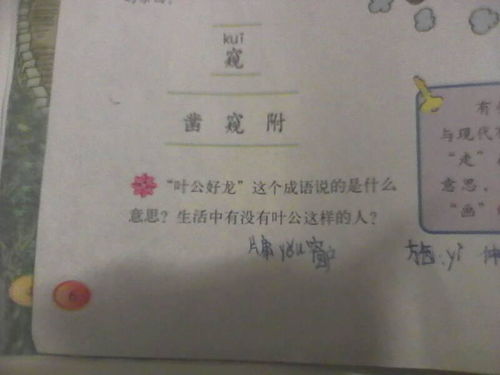 kuī
窥
凿 窥 附
“叶公好龙”这个成语说的是什么
意思？生活中有没有叶公这样的人？
有
与现代
“走”
意思，
“画”
牖 yǒu 窗
yǐ
6